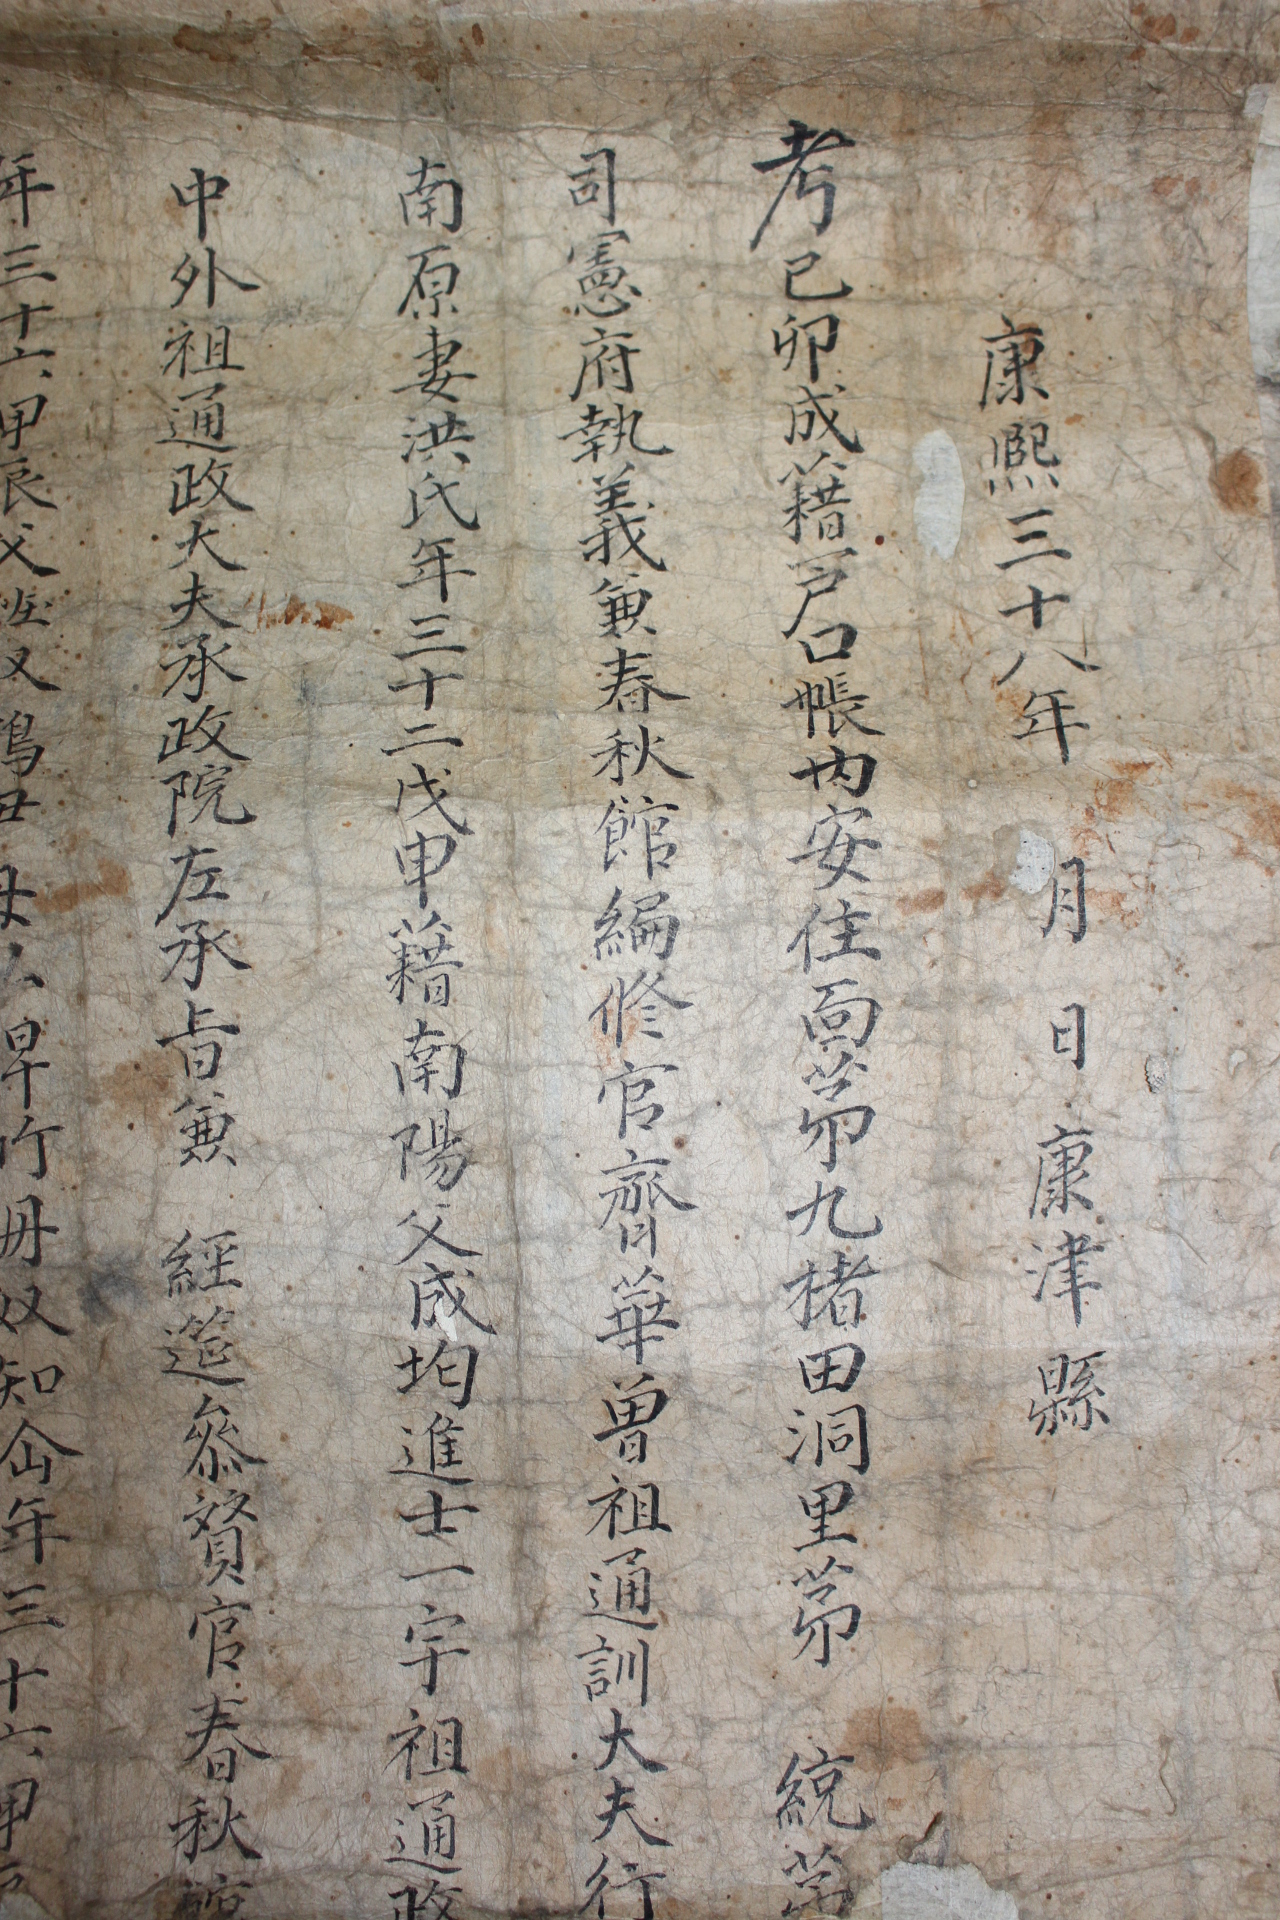 康熙三十八年 月 日康津縣
考己卯成籍戶口帳內安住面苐九楮田洞里苐 統苐
司憲府執義兼春秋館編修官齊華曾祖通訓大夫行
南原妻洪氏年三十二戊申籍南陽父成均進士一宇祖通政
中外祖通政大夫承政院左承旨兼 經筵參贊官春秋館
年三十六甲辰父 母 奴知 年三十六甲